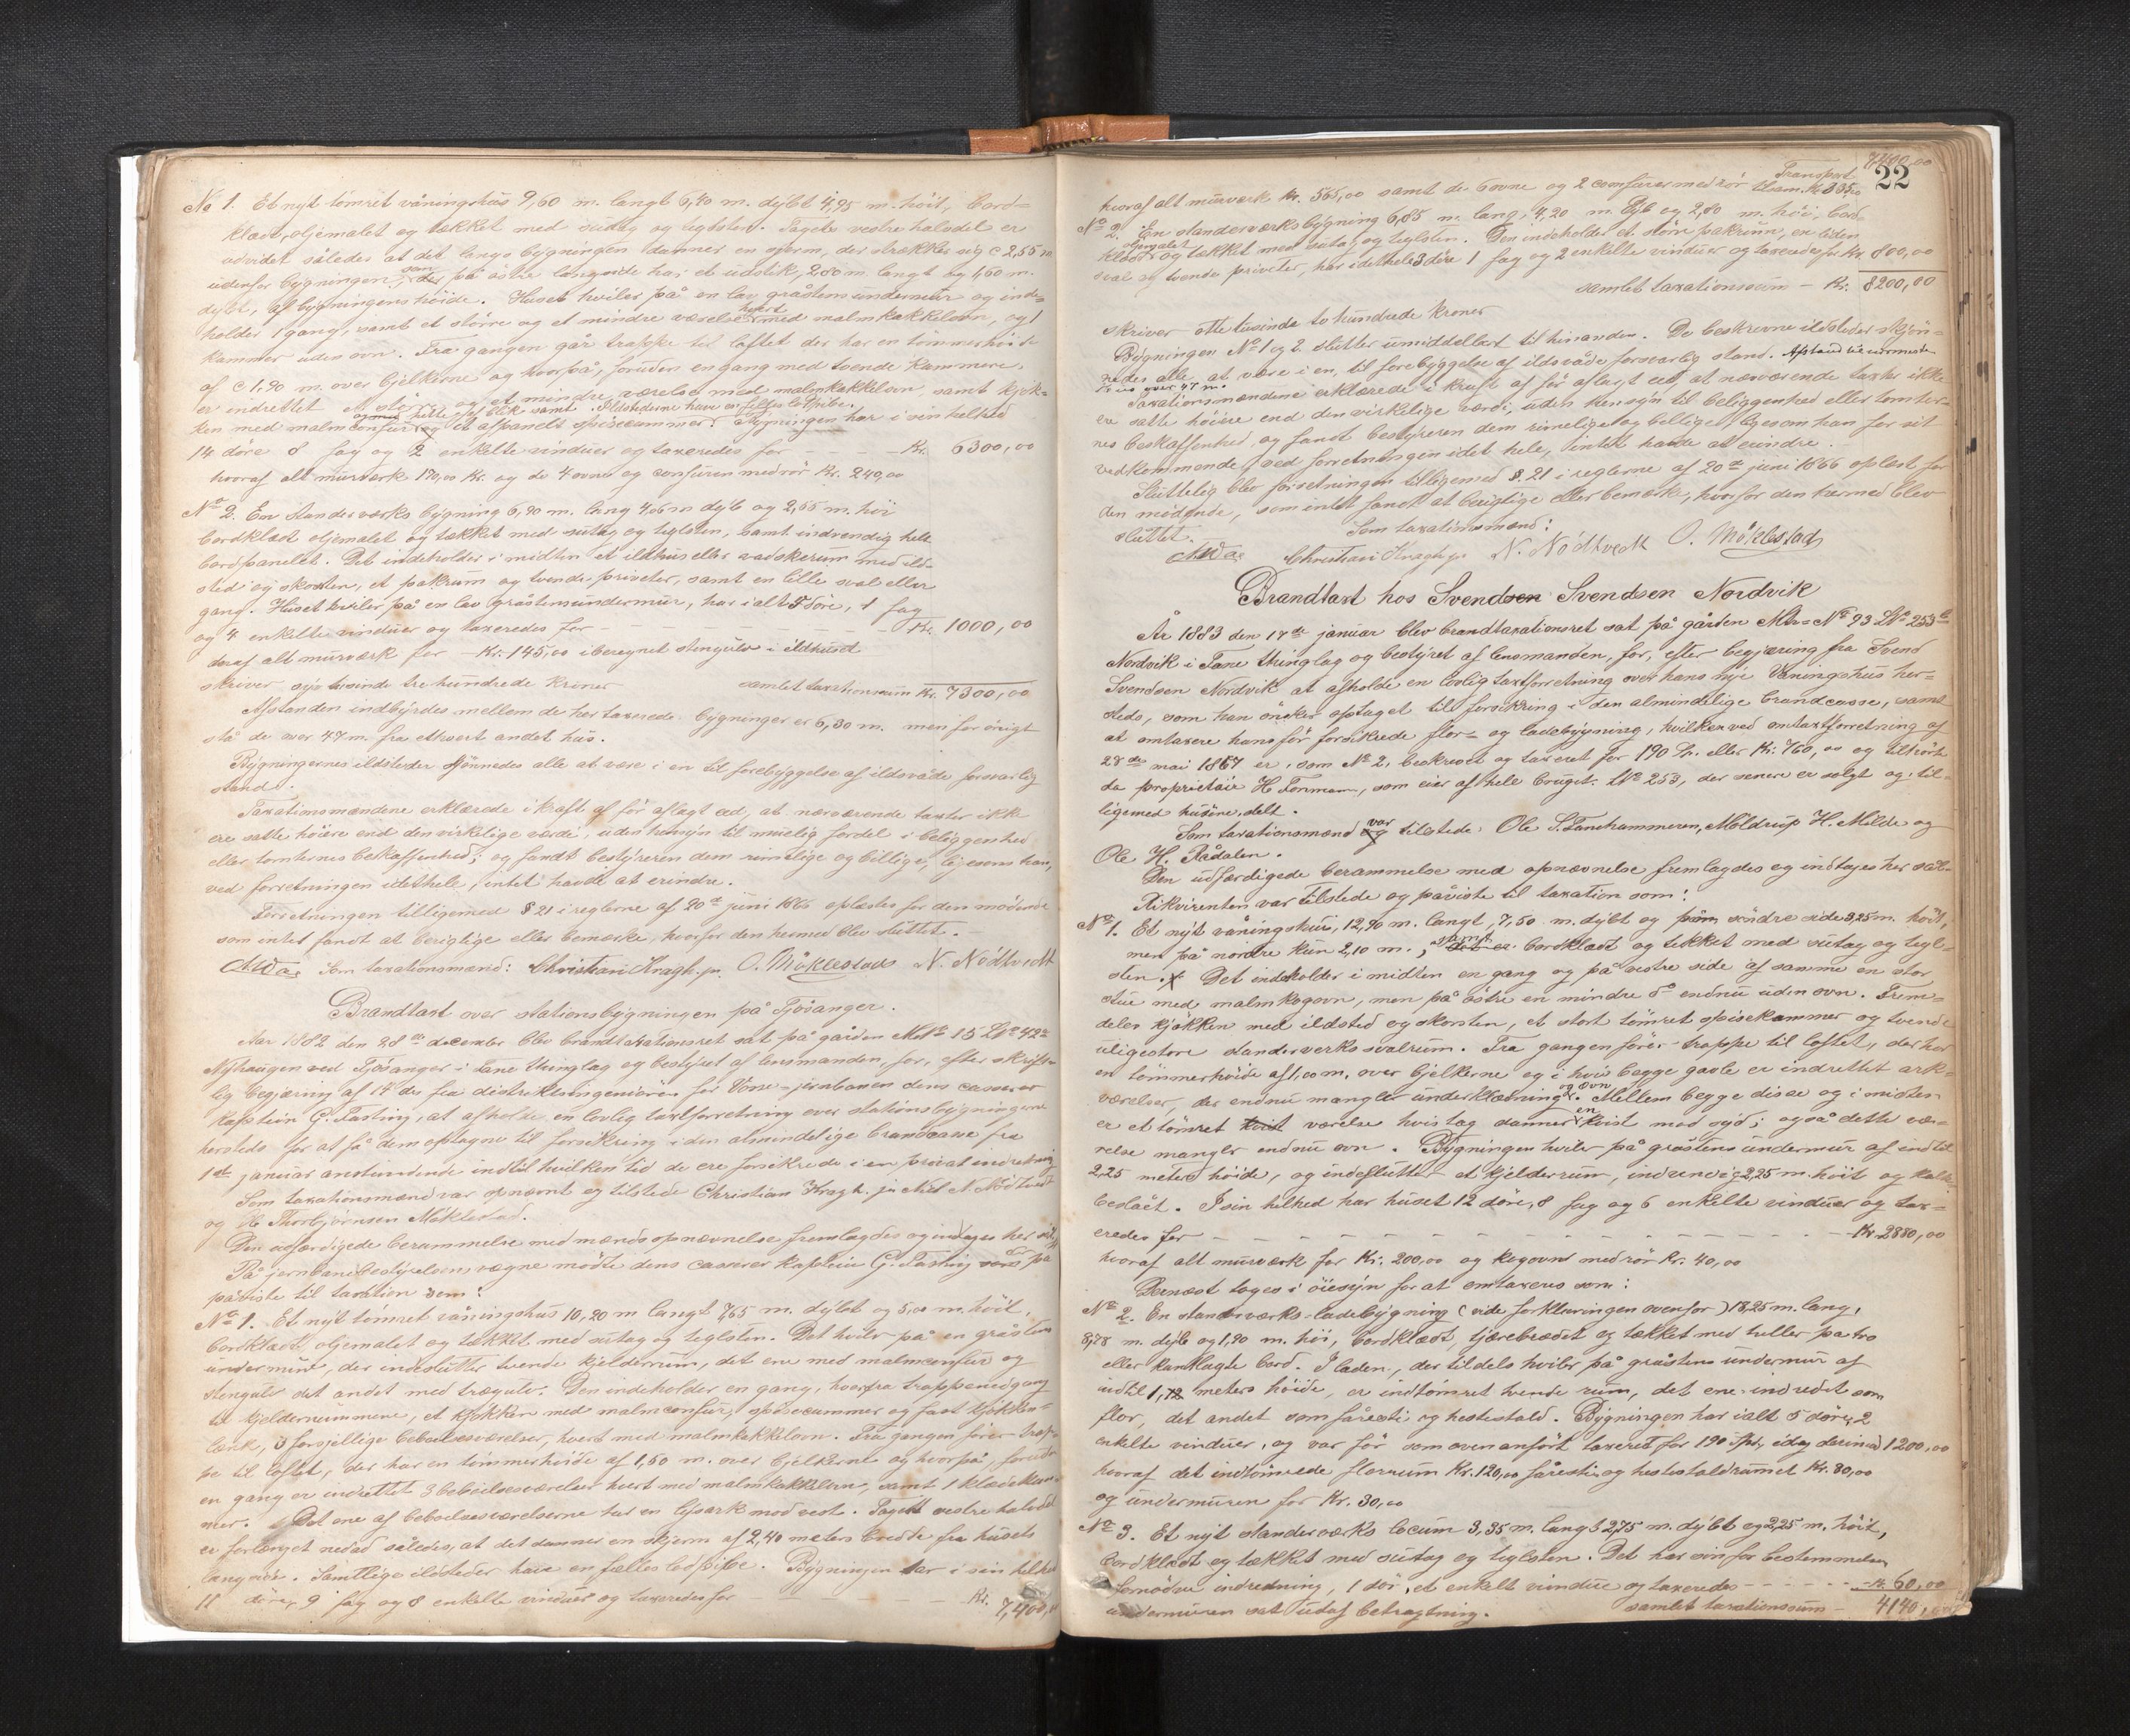 No 1. Et nyt tømret våningshus 9,60 m. langt 6,40 m. dybt 4,95 m. høit, bord=
klædt, oljemalet og tækket med sutag og teglsten. Tagets vestre halvdel er
udvidet således at det langs bygningen danner en skjerm, der strækker sig c 2,55 m
udenfor bygningen, som på østre langside har et udstik, 2,80 m. langt og 1,60 m.
dybt, af bygningens høide. Huset hviler på en lav gråstensundermur og inde=
holder 1 gang, samt et større og et mindre værelse hvert med malmkakkelovn, og 1
kammer uden ovn. Fra gangen går trappe til loftet der har en tømmerhøide
af c 1,90 m. over bjelkerne og hvorpå, foruden en gang med tvende kammere,
er indrettet et større og et mindre værelse med malmkakkelovn, samt kjøk=
ken med malmcomfur og et afpanelt spisecammer. Bygningen har i sin helhed
14 døre 8 fag og 2 enkelte vinduer og taxeredes for - - - Kr. 6300,00
hvoraf alt murværk 170,00 Kr. og de 4 ovne og comfuren med rør Kr. 240,00
No 2. En standerværks bygning 6,90 m. lang 4,06 m dyb og 2,55 m. høi
bordklædt oljemalet og tækket med sutag og teglsten, samt indvendig hele
bordpanelet. Det indeholder i midten et ildhus eller vadskerum med ild=
sted og skorsten, et pakrum og tvende priveter, samt en lille sval eller
gang. Huset hviler på en lav gråstensundermur, har ialt 5 døre, 1 fag
og 4 enkelte vinduer og taxeredes for - - - Kr. 1000,00
deraf alt murværk for - Kr. 145,00 iberegnet stengulv i ildhuset
skriver syv tusinde tre hundrede kroner samlet taxationssum Kr. 7300,00
Afstanden indbyrdes mellem de her taxerede bygninger er 6,30 m. men for øvrigt
stå de over 47 m. fra ethvert andet hus.
Bygningernes ildsteder skjønnedes alle at være i en til forebyggelse af ildsvåde forsvarlig
stand.
Taxationsmændene erklærede i kraft af før aflagt ed, at nærværende taxter ikke
ere satte høiere end den virkelige værdi, uden hensyn til muelig fordel i beliggenhed
eller tomternes beskaffenhed; og fandt bestyreren dem rimelige og billige, ligesom han,
ved forretningen idethele, intet havde at erindre.
Forretningen tilligemed § 21 i reglerne af 20de juni 1866 oplæstes for den mødende
som intet fandt at berigtige eller bemærke, hvorfor den hermed blev sluttet. -
Som taxationsmænd: Christian Kragh jr. O. Møklestad N. Nödtvedt
Brandtaxt over stationsbygningen på Fjösanger.
Aar 1882 den 28de december blev brandtaxationsret sat på gården M.No 15 LNo 42
Nyhaugen ved Fjösanger i Fane thinglag og bestyret af lensmanden, for, efter skrift=
lig begjæring af 14 ds fra distriktsingeniøren for Vosse-jernbanen dens casserer
kaptein G. Fasting, at afholde en lovlig taxtforretning over stationsbygningerne
hersteds for at få dem optagne til forsikring i den almindelige brandcasse fra
1ste januar anstundende indtil hvilken tid de ere forsikrede i en privat indretning
Som taxationsmænd var opnævnt og tilstede Christian Kragh jr. Nils N. Nödtvedt
og O. Thorbjørnsen Møklestad.
Den udfærdigede berammelse med mændsopnævnelse fremlagdes og indtages her
På jernbanebestyrelsens vegne mødte dens casserer kaptein G. Fasting
påviste til taxation som:
No 1. Et nyt tømret våningshus 10,20 m langt 7,65 m. dybt og 5,00 m. høit,
bordklædt, oljemalet og tækket med sutag og teglsten. Det hviler på en gråstens
undermur, der indeslutter tvende kjelderrum, det ene med malmcomfur og
stengulv det andet med trægulv. Den indeholder en gang, hvorfra trappenedgang
til kjelderrummene, et kjøkken med malmcomfur, spisecammer og fast kjøkken=
bænk, 3 forsjellige beboelsesværelser, hvert med malmkakkelovn. Fra gangen fører trap=
pe til loftet, der har en tømmerhøide af 1,50 m. over bjelkerne og hvorpå, foruden
en gang er indrettet 3 beboelsesværelser hvert med malmkakkelovn, samt 1 klædekam=
mer. Det ene af beboelsesværelserne har en lysark mod vest. Taget vestre halvdel
er forlænget nedad således, at det danner en skjerm af 2,40 meters bredde fra husets
langside. Samtlige ildsteder have en fælles ledpibe. Bygningen har i sin helhed
11 døre, 9 fag og 8 enkelte vinduer og taxeredes for - - - Kr. 7,400,00
22
Transport 7400,00
hvoraf alt murværk Kr. 565,00 samt de 6 ovne og 2 comfurer med rør tilsam. Kr 335,00
No 2. En standerværksbygning 6,85 m. lang, 4,20 m. dyb og 2,80 m. høi, bord=
klædt oljemalet og tækket med sutag og teglsten. Den indeholder et større pakrum, en liden
sval og tvende priveter, har i det hele 3 døre 1 fag og 2 enkelte vinduer og taxeredes for Kr. 800,00
samlet taxationssum - Kr. 8200,00
skriver otte tusinde to hundrede kroner
Bygningen No 1 og 2 slutter umiddelbart til hinanden. De beskrevne ildsteder skjøn=
nedes alle at være i en, til forebyggelse af ildsvåde forsvarlig stand. Afstand til nærmeste
hus over 47 m.
Taxationsmændene erklærede i kraft af før aflagt ed, at nærværende taxter ikke
ere satte høiere end den virkelige værdi, uden hensyn til beliggenhed eller tomter=
nes beskaffenhed, og fandt bestyreren dem rimelige og billige, ligesom han for sit
vedkommende, ved forretningen idet hele, intet havde at erindre.
Sluttelig blev forretningen tilligemed §. 21 i reglerne af 20de juni 1866 oplæst for
den mødende, som intet fandt at berigtige eller bemærke, hvorfor den hermed blev
sluttet. Som taxationsmænd:
Christian Kragh jr. N. Nödtvedt O. Møklestad
Brandtaxt hos Svendsen Svendsen Nordvik
År 1883 den 17de januar blev brandtaxationsret sat på gården Mtr=No 93 LNo 253b
Nordvik i Fane thinglag og bestyret af lensmanden, for, efter begjæring fra Svend
Svendsen Nordvik at afholde en lovlig taxtforretning over hans nye Våningshus her=
steds, som han ønsker optaget til forsikring i den almindelige brandcasse, samt
at omtaxere hans før forsikrede flor= og ladebygning, hvilken ved omtaxtforretning af
28de mai 1867 er, som No 2, beskrevet og taxeret for 190 Sp. eller Kr: 760,00 og tilhørte
da proprietair H. Formann, som eier af hele bruget. LNo 253, der senere er solgt og til=
ligemed husene, delt.
Som taxationsmænd var tilstede: Ole S. Fanehammeren, Möldrup H. Milde og
Ole H. Rådalen.
Den udfærdigede berammelse med opnævnelse fremlagdes og indtages her
Rikvirenten var tilstede og påviste til taxation som:
No 1. Et nyt våningshus, 12,90 m. langt, 7,50 m. dybt og søndre side 3,25 m. høit,
men på nordre kun 2,10 m., bordklædt og tækket med sutag og tegl=
sten. Det indeholder i midten en gang og på vestre side af samme en stor
stue med malmkogovn, men på østre en mindre do endnu uden ovn. Frem=
deles kjøkken med ildsted og skorsten, et stort tømret spisekammer og tvende
uligestore standerverks svalrum. Fra gangen fører trappe til loftet, der har
en tømmerhøide af 1,00 m. over bjelkerne og i hvis begge gavle er indrettet ark=
værelser, der endnu mangler underklædning og ovn. Mellem begge disse og i midten
er et tømret værelse hvis tag danner en kvist mod syd; også dette væ=
relse mangler endnu ovn. Bygningen hviler på gråstens undermur af indtil
2,25 meters høide, og indeslutter et kjelderrum, indvendig 2,25 m. høit og kalk=
beslåt. I sin helhed har huset 12 døre, 8 fag og 6 enkelte vinduer og tax=
eredes for - - - Kr. 2880,00
hvoraf alt murværk for Kr. 200,00 og kogovnen med rør Kr. 40,00
Dernæst toges i øiesyn for at omtaxeres som:
No 2. En standerværks-ladebygning (vide forklaringen ovenfor) 18,25 m. lang,
8,78 m. dyb og 1,90 m. høi, bordklædt, tjærebrædet og tækket med heller på tro
eller kantlagte bord. I laden, der tildels hviler på gråstens undermur af
indtil 1,72 meters høide, er indtømret tvende rum, det ene indredet som
flor, det andet som fåresti og hestestald. Bygningen har ialt 5 døre, 2
enkelte vinduer, og var før som ovenanført taxeret for 190 Spd, idag derimod 1200,00
hvoraf det indtømrede florrum Kr. 120,00 fåresti og hestestaldrummet Kr. 80,00
og undermuren for Kr. 30,00
No 3. Et nyt standerværks locum 3,35 m. langt 2,75 m. dybt og 2,25 m. høit,
bordklædt og tækket med sutag og teglsten. Det har sin for bestemmelsen
fornødne indredning, 1 dør, et enkelt vindue og taxeredes - - - Kr. 60,00
undermuren sat udaf betragtning. samlet taxationssum - 4140,00